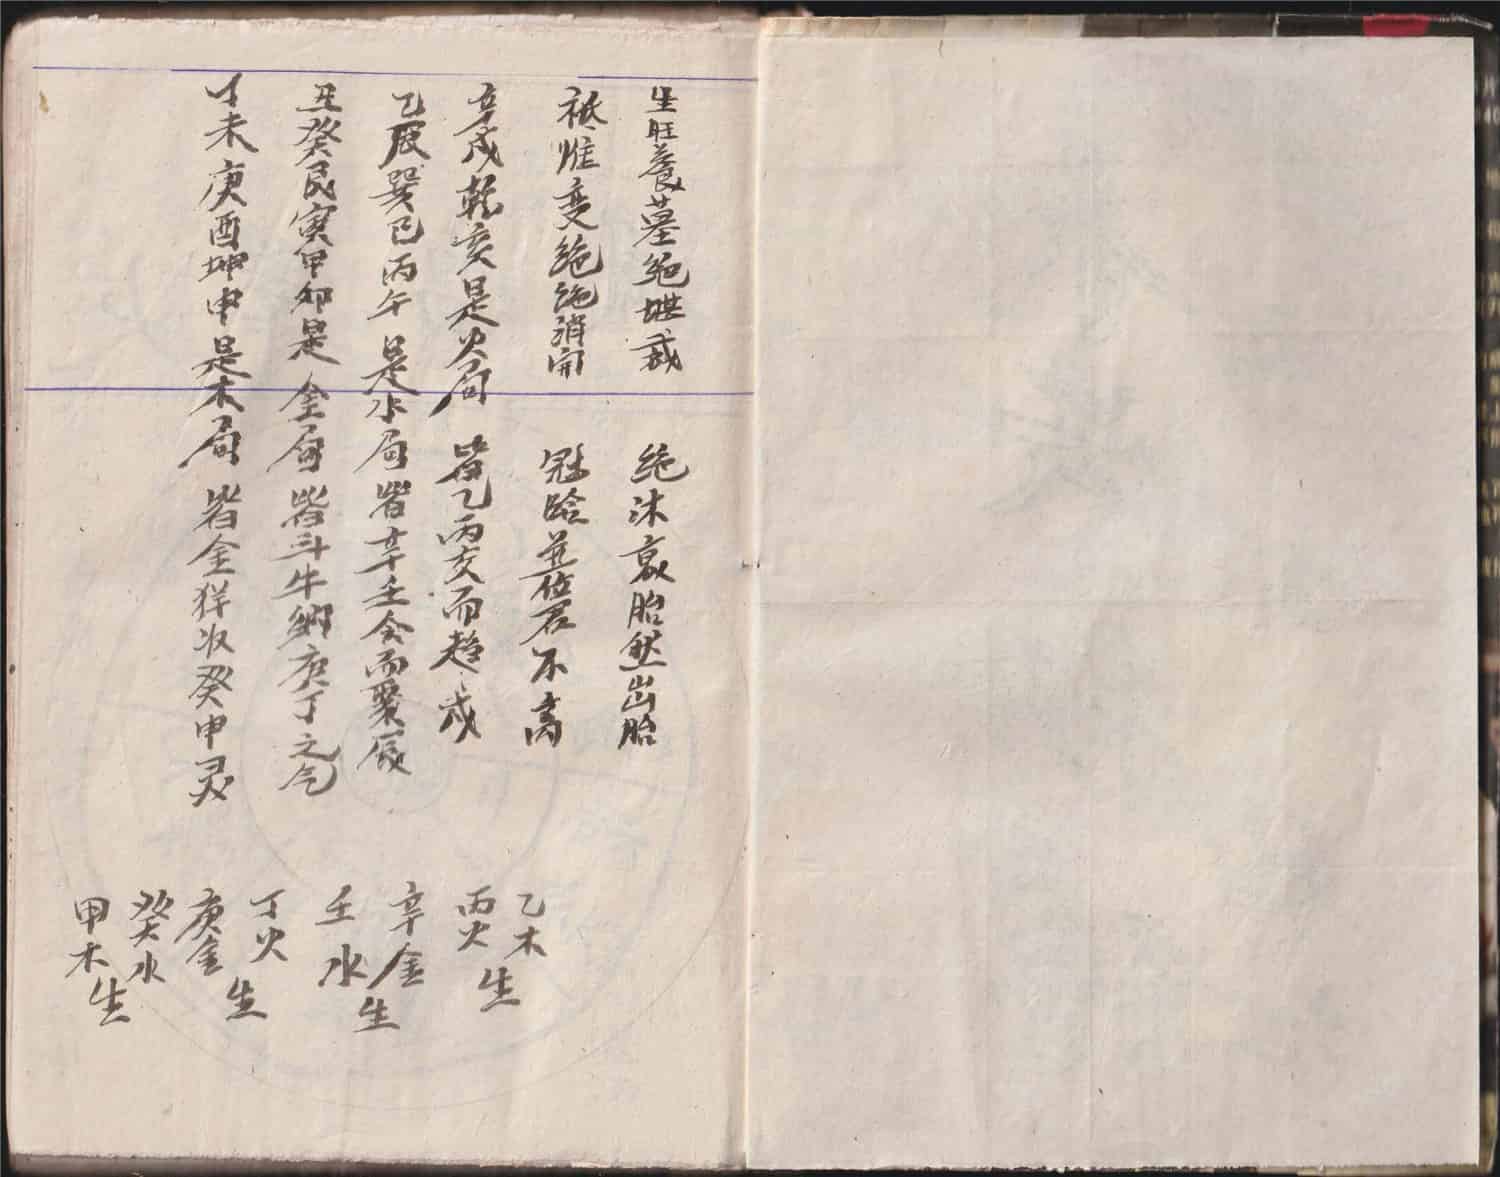 生旺养墓绝堪裁 绝沐衰胎然出胎
祗惟变绝绝消开 冠临并位君不高
辛戌乾亥是火局 皆乙丙交而趋戌
乙辰巽巳丙午是水局 皆辛壬会而聚辰
丑癸艮寅甲卯是金局 皆斗牛纳庚丁之气
丁未庚酉坤申是木局 皆金羊收癸甲灵
乙木
丙火 生
辛金
壬水 生
丁火
庚金 生
癸水
甲木 生